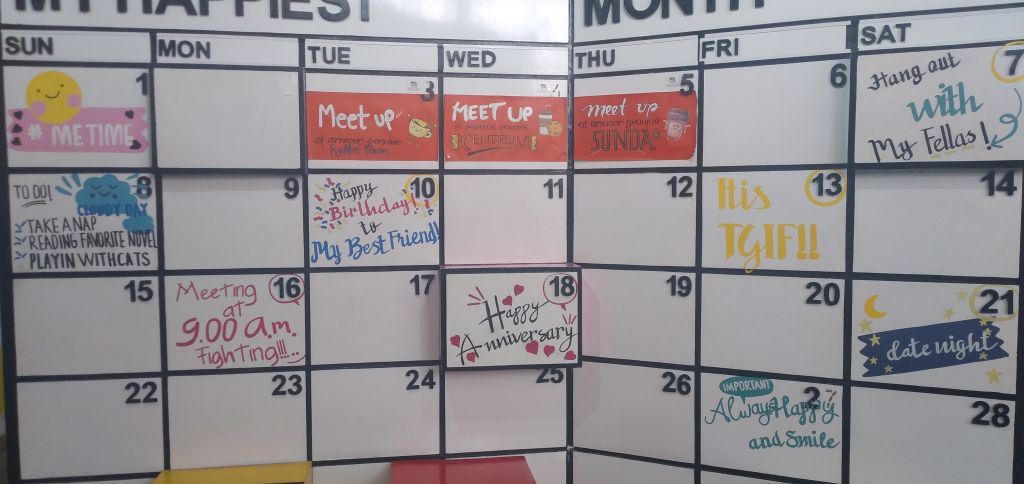 MY HAPPIEST MONTH
SUN MON TUE WED THU FRI SAT
1
# ME TIME
3
Meet up
at armoor genuine
4
MEET UP
@ ARMOOR GENUINE
CENTRUM
5
meet up
at armoor genuine
SUNDA
6
7
Hang out
with
My Fellas!
8
TO DO!
CLOUDY DAY
TAKE A NAP
READING FAVORITE NOVEL
PLAYIN WITH CATS
9
10
Happy
Birthday!
to
My Best Friend!
11
12
13
It is
TGIF!!
14
15
16
Meeting
at
9.00 a.m.
Fighting!!!...
17
18
Happy
Anniversary
19
20
21
date night
22
23
24
25
26
27
IMPORTANT
Always Happy
and Smile
28